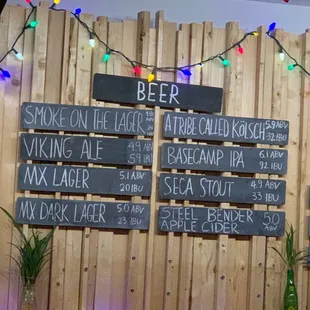 BEER
SMOKE ON THE LAGER
VIKING ALE 4.9 ABV
59 IBU
MX LAGER 5.1 ABV
20 IBU
MX DARK LAGER 5.0 ABV
23 IBU
A TRIBE CALLED KÖLSCH 5.9 ABV
32 IBU
BASECAMP IPA 6.1 ABV
92 IBU
SECA STOUT 4.9 ABV
33 IBU
STEEL BENDER 5.0
APPLE CIDER ABV